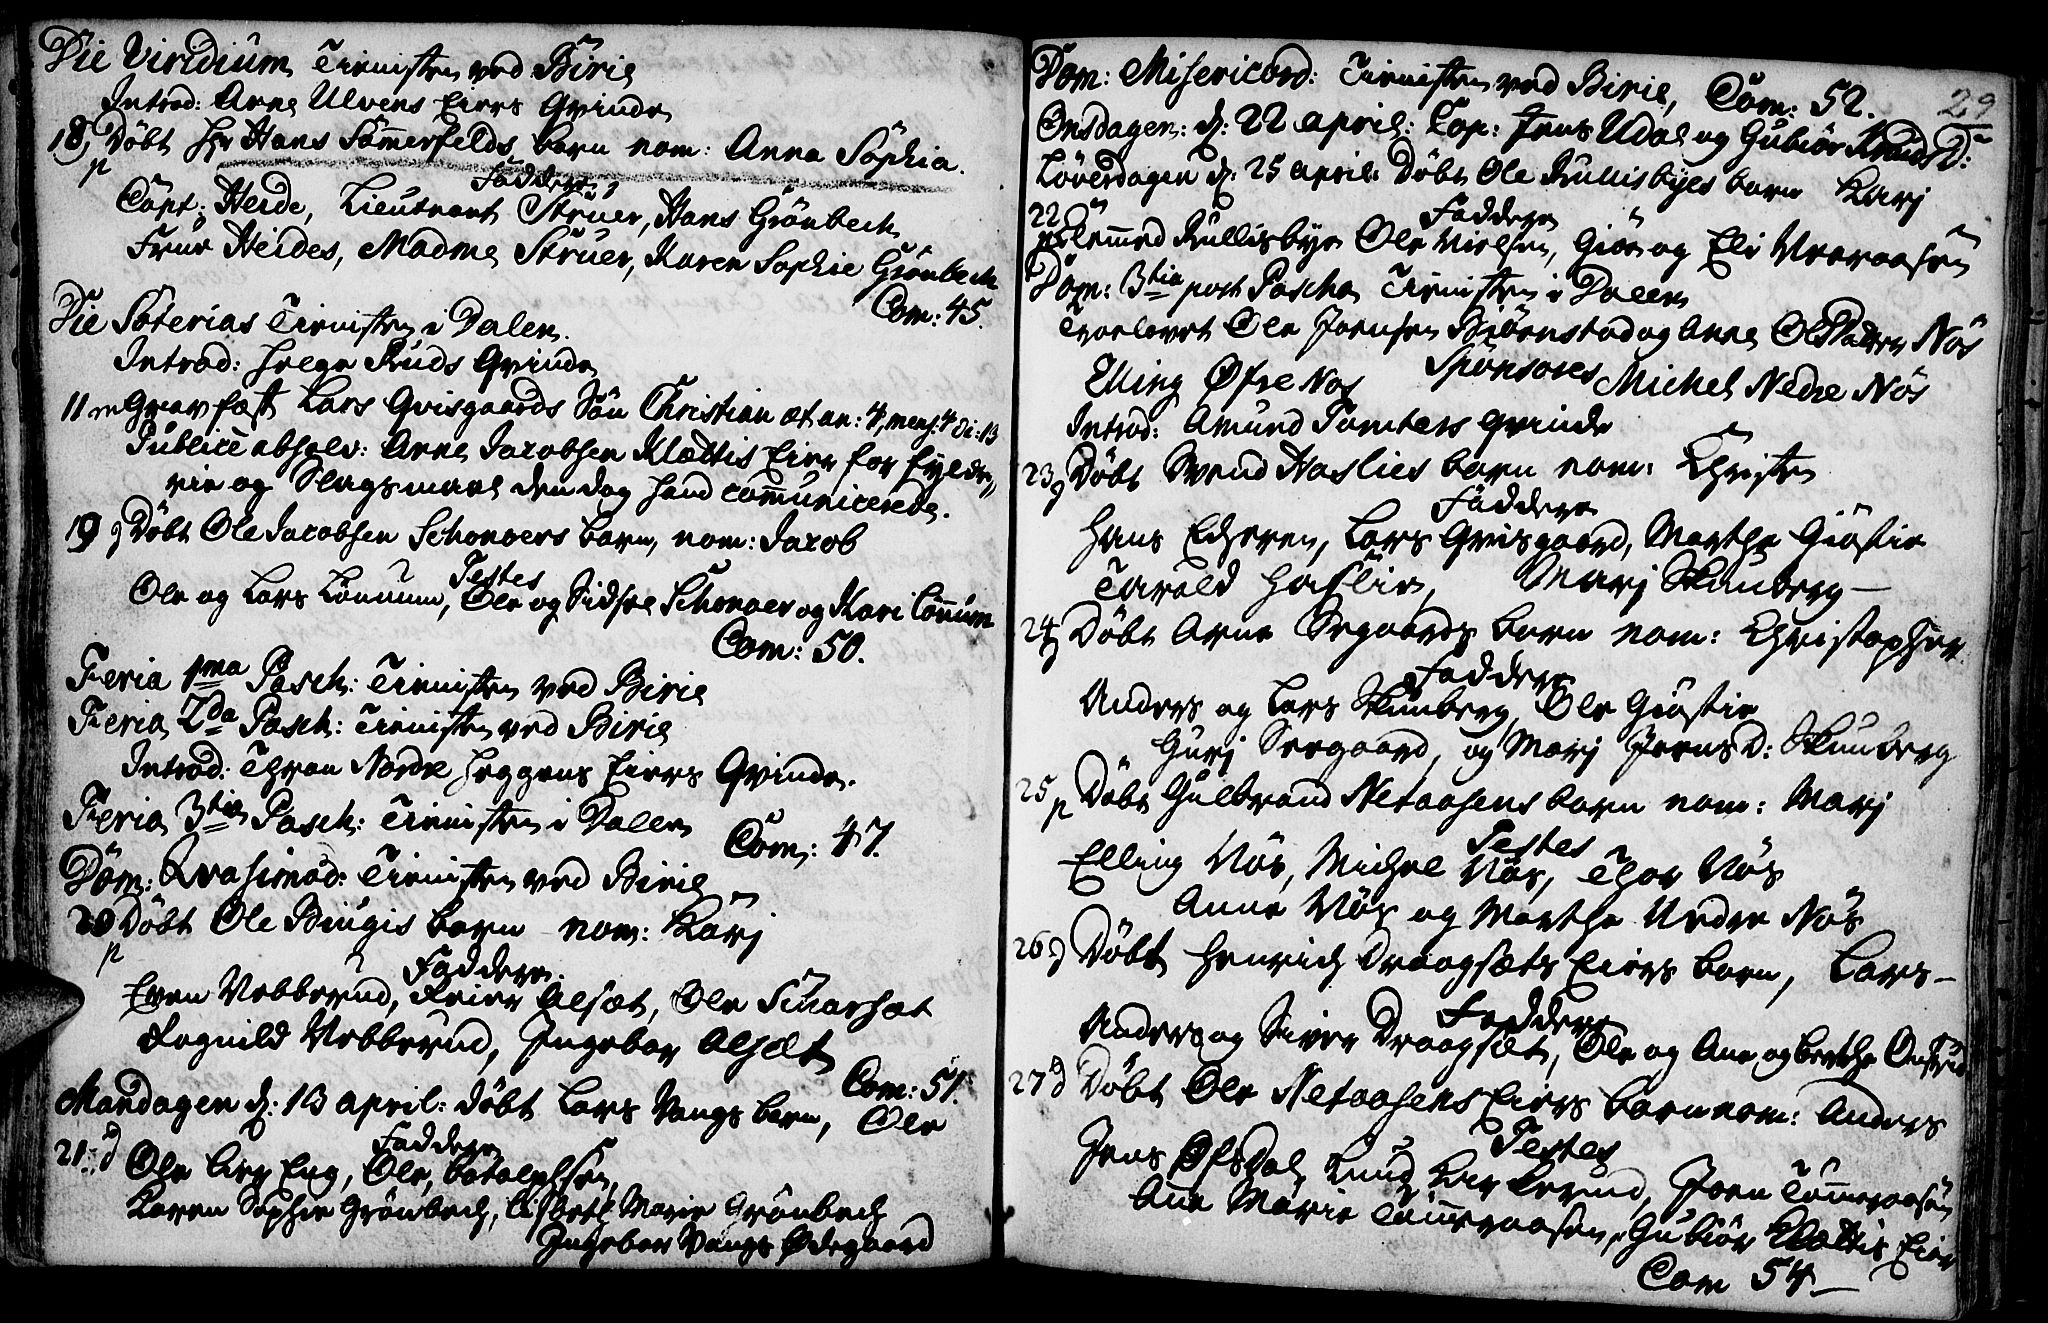 Die Viridium Tienisten ved Birie
Introd: Arne Ulvens Eiers Qvinde
18, Døbt Hr Hans Sommerfelds barn nom: Anna Sophia.
p
Faddere
Capt: Heide, Lieutnant Strüer, Hans Grönbech
Frue Heides, Madme Strüer, Karen Sophie Grönbech
Com: 45.
Die Soterias Tienisten i Dalen.
Introd: Helge Ruds Qvinde
11 m Gravfæst Lars Qvisgaards Søn Christian æt an: 4, mens: 4 di: 13
Publicè absolv: Arne Jacobsen Klættis Eier for fylde,,
rie og Slagsmaal den dag hand communicerede.
19 d Døbt Ole Jacobsen Schonoers barn, nom: Jacob
Testes
Ole og Lars Lønnum, Ole og Sidsel Schonoer og Kari Lønnum
Com: 50.
Feria 1ma Pasch: Tienisten ved Birie
Feria 2da Pasch: Tienisten ved Birie
Introd: Thron Nordre Heggens Eiers Qvinde.
Feria 3tia Pasch: Tienisten i Dalen
Com: 47.
Dom: Qvasimod: Tienisten ved Birie
20 Døbt Ole Biugis barn nom: Karj
p
Faddere
Even Vebberud, Reier Alsæt, Ole Smarsæt
Rognild Vebberud, Ingebor Alsæt
Com: 51.
Mandagen d: 13 april: døbt Lars Vangs barn, Ole
21 d Faddere
Ole Eng, Ole Botolphsen,
Karen Sophie Grönbech, Lisbeth Marie Grönbech
Ingebor Vangs Ødegaard
29
Dom: Misericord: Tienisten ved Birie, Com: 52.
Onsdagen: d: 22 april: Cop: Jens Udal og Gubiør Knuds D:
Løverdagen d: 25 april: Døbt Ole Rullisbyes barn Karj
22 Faddere
p Rullisbye Ole Nielsen, Giøe og Eli
Dom: 3tia post Pascha Tienisten i Dalen
Troelovet Ole Joensen Biørnstad og Anne Olstaden Nös
Sponsores
Elling Øfre Nos Michel Nedre Nös
Introd: Amund Tomters Qvinde
23 d Døbt Svend Haslies barn nom: Christen
Faddere
Hans Lars Qvisgaard, Marthe Giøstie
Tarald Haslie, Marj Skunberg
24 d Døbt Arne Segaards barn nom: Christopher
Faddere
Anders og Lars Skunberg, Ole Giøstie
Gurj Seegaard, og Marj Joens D: Skunberg
25 p Døbt Gulbrand Netaasens barn nom: Marj
Testes
Elling Nös, Michel Nös, Thor Nös
Anne Nös og Marthe Nedre Nös
26 d Døbt Henrich Draagsæts Eiers barn, Lars
Faddere
Anders og Siver Draagsæt, Ole og Ane og berthe
27 d Døbt Ole Netaasens Eiers barn nom: Anders
Testes
Jens Øfsdal, Knud, Joen Tømmeraasen
Ane Marie Tømmeraasen, Gubiør Klættis Eier
Com 54